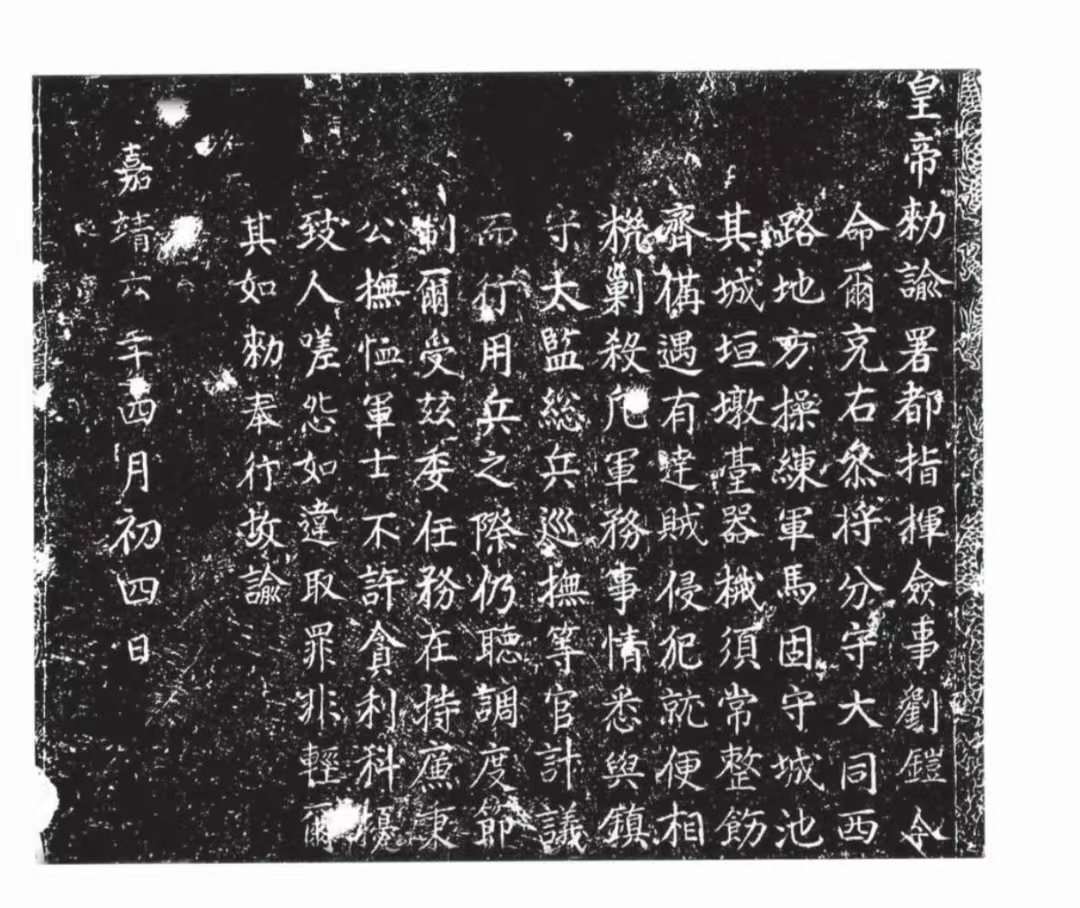 皇帝勑諭署都指揮僉事劉鎧今
命爾充右叅將分守大同西
路地方操練軍馬固守城池
其城垣墩臺器械須常整飭
齊備遇有達賊侵犯就便相
機剿殺凡軍務事情悉與鎮
守太監總兵巡撫等官計議
而行用兵之際仍聽調度節
制爾受茲委任務在持廉秉
公撫恤軍士不許貪利科擾
致人嗟怨如違取罪非輕爾
其如勑奉行故諭
嘉靖六年四月初四日